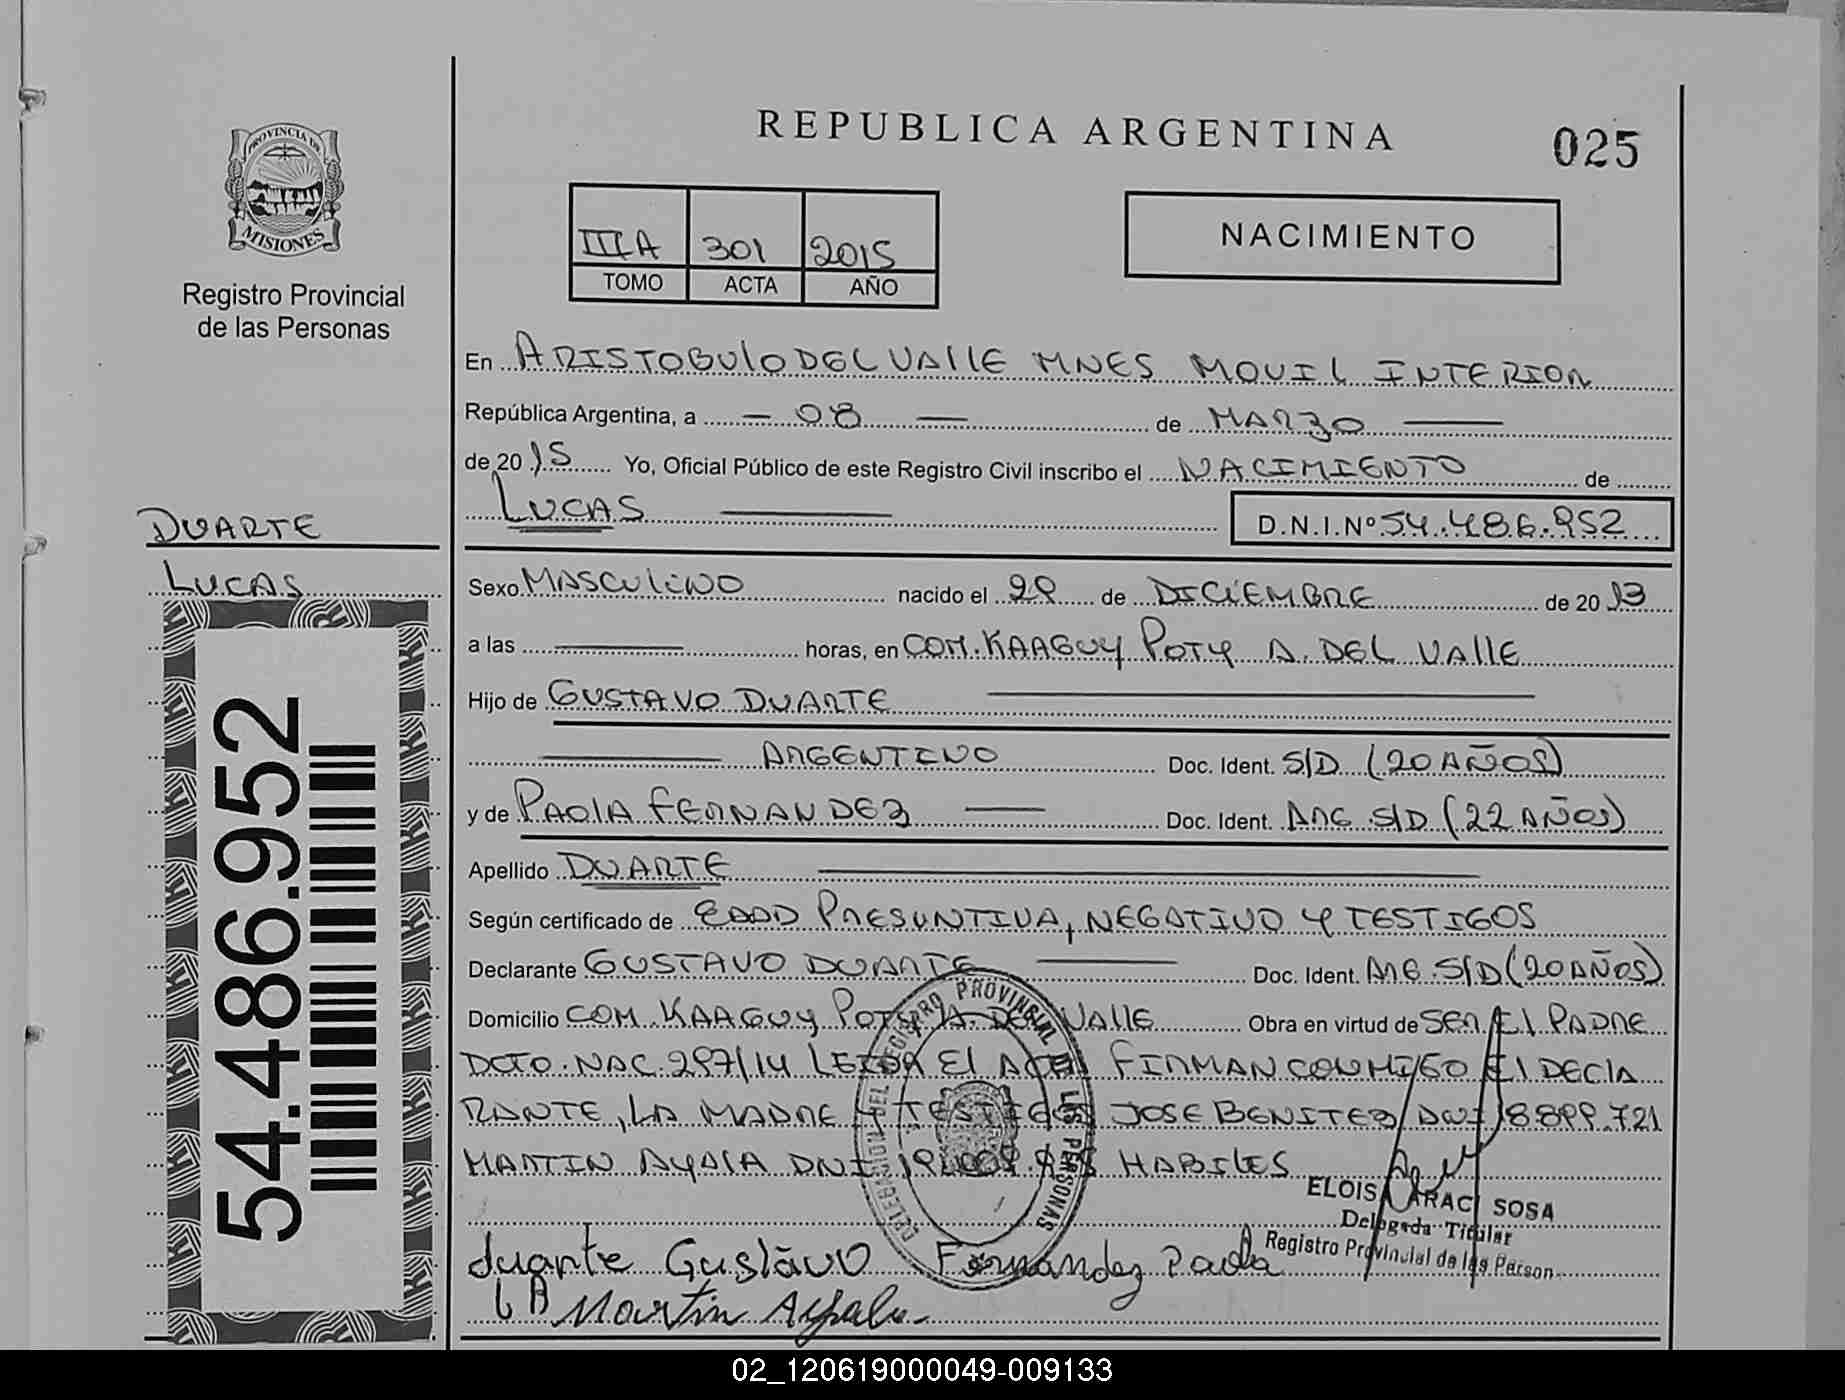 REPUBLICA ARGENTINA
025
PROVINCIA DE
MISIONES
Registro Provincial
de las Personas
IIIA 301 2015
TOMO ACTA AÑO
NACIMIENTO
En ARISTOBULO DEL VALLE MNES MOVIL INTERIOR
República Argentina, a - 08 - de MARZO
de 2015 Yo, Oficial Público de este Registro Civil inscribo el NACIMIENTO de
LUCAS D.N.I.Nº 54.486.952
DUARTE
LUCAS
54.486.952
Sexo MASCULINO nacido el 29 de DICIEMBRE de 2013
a las horas, en COM. KAAGUY POTY A. DEL VALLE
Hijo de GUSTAVO DUARTE
ARGENTINO Doc. Ident. S/D (20 AÑOS)
y de PAOLA FERNANDEZ Doc. Ident. ARG S/D (22 AÑOS)
Apellido DUARTE
Según certificado de EDAD PRESUNTIVA, NEGATIVO Y TESTIGOS
Declarante GUSTAVO DUARTE Doc. Ident. ARG. S/D (20 AÑOS)
Domicilio COM. KAAGUY POTY A. DEL VALLE Obra en virtud de SER EL PADRE
DCTO. NAC. 297/14 LEIDA EL ACTA FIRMAN CONMIGO EL DECLA
RANTE, LA MADRE Y TESTIGOS JOSE BENITEZ DNI 18.899.721
MARTIN AYALA DNI HABILES
DELEGACION DEL REGISTRO PROVINCIAL DE LAS PERSONAS
ELOISA ARACI SOSA
Delegada Titular
Registro Provincial de las Person
duarte Gustavo Fernández Paola
Martin Ayala
02_120619000049-009133